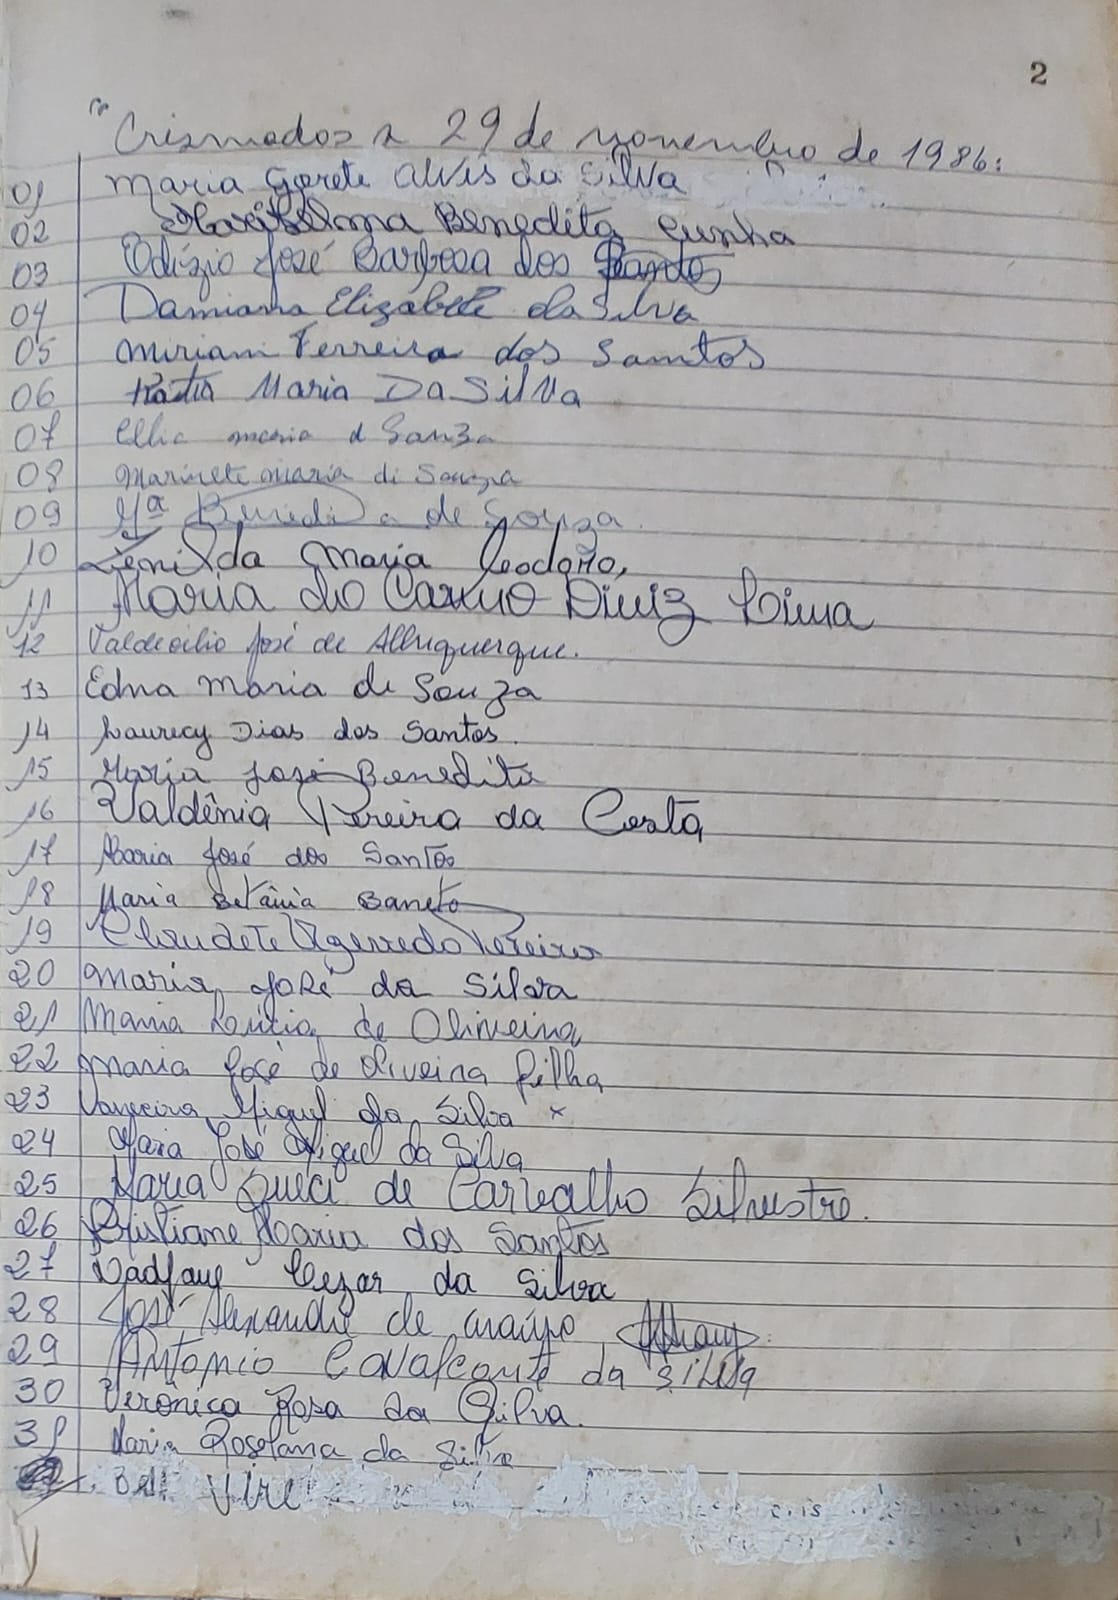 2
Crismados a 29 de novembro de 1986:
01 Maria Gorete Alvis da Silva
02 Benedita Cunha
03 Odizio José Barbosa dos Santos
04 Damiana Elizabete da Silva
05 Miriam Ferreira dos Santos
06 Katia Maria Da Silva
07 maria d
08 Marinete maria di Souza
09 Mª Benedita de Souza
10 Zenilda Maria Teodoro,
11 Maria do Carmo Diniz Lima
12 José de Albuquerque.
13 Edna Maria de Souza
14 Laurecy Dias dos Santos.
15 Maria José Benedita
16 Valdênia Pereira da Costa
17 Maria José dos Santos
18 Maria Betânia
19 Claudete Pereira
20 Maria José da Silva
21 Maria Lucia de Oliveira
22 Maria José de Oliveira filha
23 Miguel da Silva x
24 Maria José Miguel da Silva
25 Maria de Carvalho Silvestre.
26 Cristiane Maria dos Santos
27 Cezar da Silva
28 José Alexandre de araújo
29 Antonio Cavalcante da Silva
30 Verônica Rosa da Silva.
31 Maria Roseana da Silva